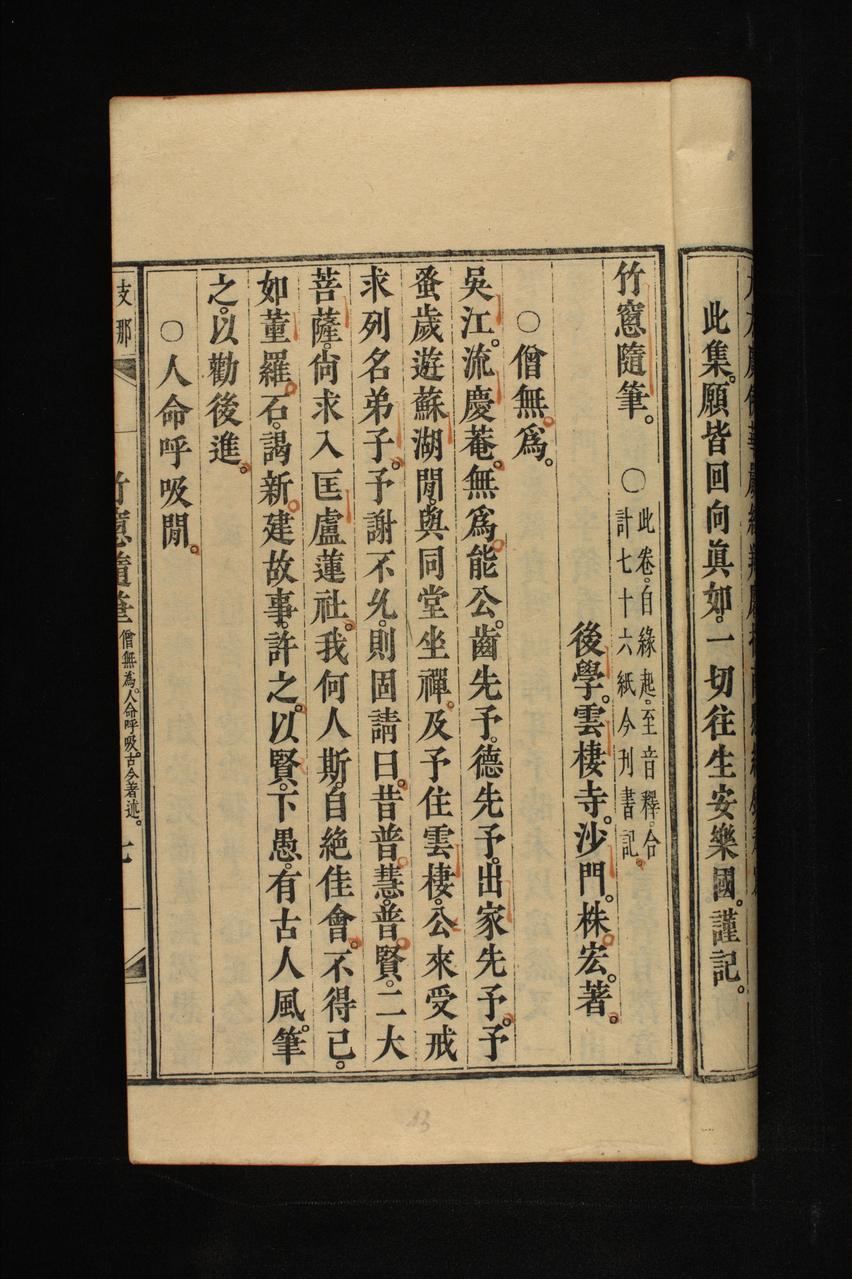 此集。願皆回向眞如。一切往生安樂國。謹記。
竹窻隨筆。
〇此卷。自緣起。至音釋。合
計七十六紙今刊書記。
後學。雲棲寺。沙門。株宏。著。
〇僧無爲。
吳江。流慶菴。無爲。能公。齒先予。德先予。出家先予。予
蚤歲遊蘇湖閒。與同堂坐禪。及予住雲棲。公來受戒
求列名弟子。予謝不允。則固請曰。昔普慧。普賢。二大
菩薩。尙求入匡盧蓮社。我何人斯。自絶佳會。不得已。
如董羅石。謁新建故事。許之。以賢。下愚。有古人風。筆
之。以勸後進。
〇人命呼吸閒。
支那
竹窻隨筆
僧無爲。人命呼吸。古今著述。
七